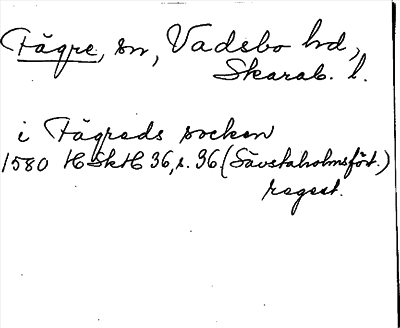 Fägre, sn, Vadsbo hd,
Skarab. l.
i Fägreds socken
1580 HSkH 36, s. 96 (Sävstaholmsfört.)
regest.